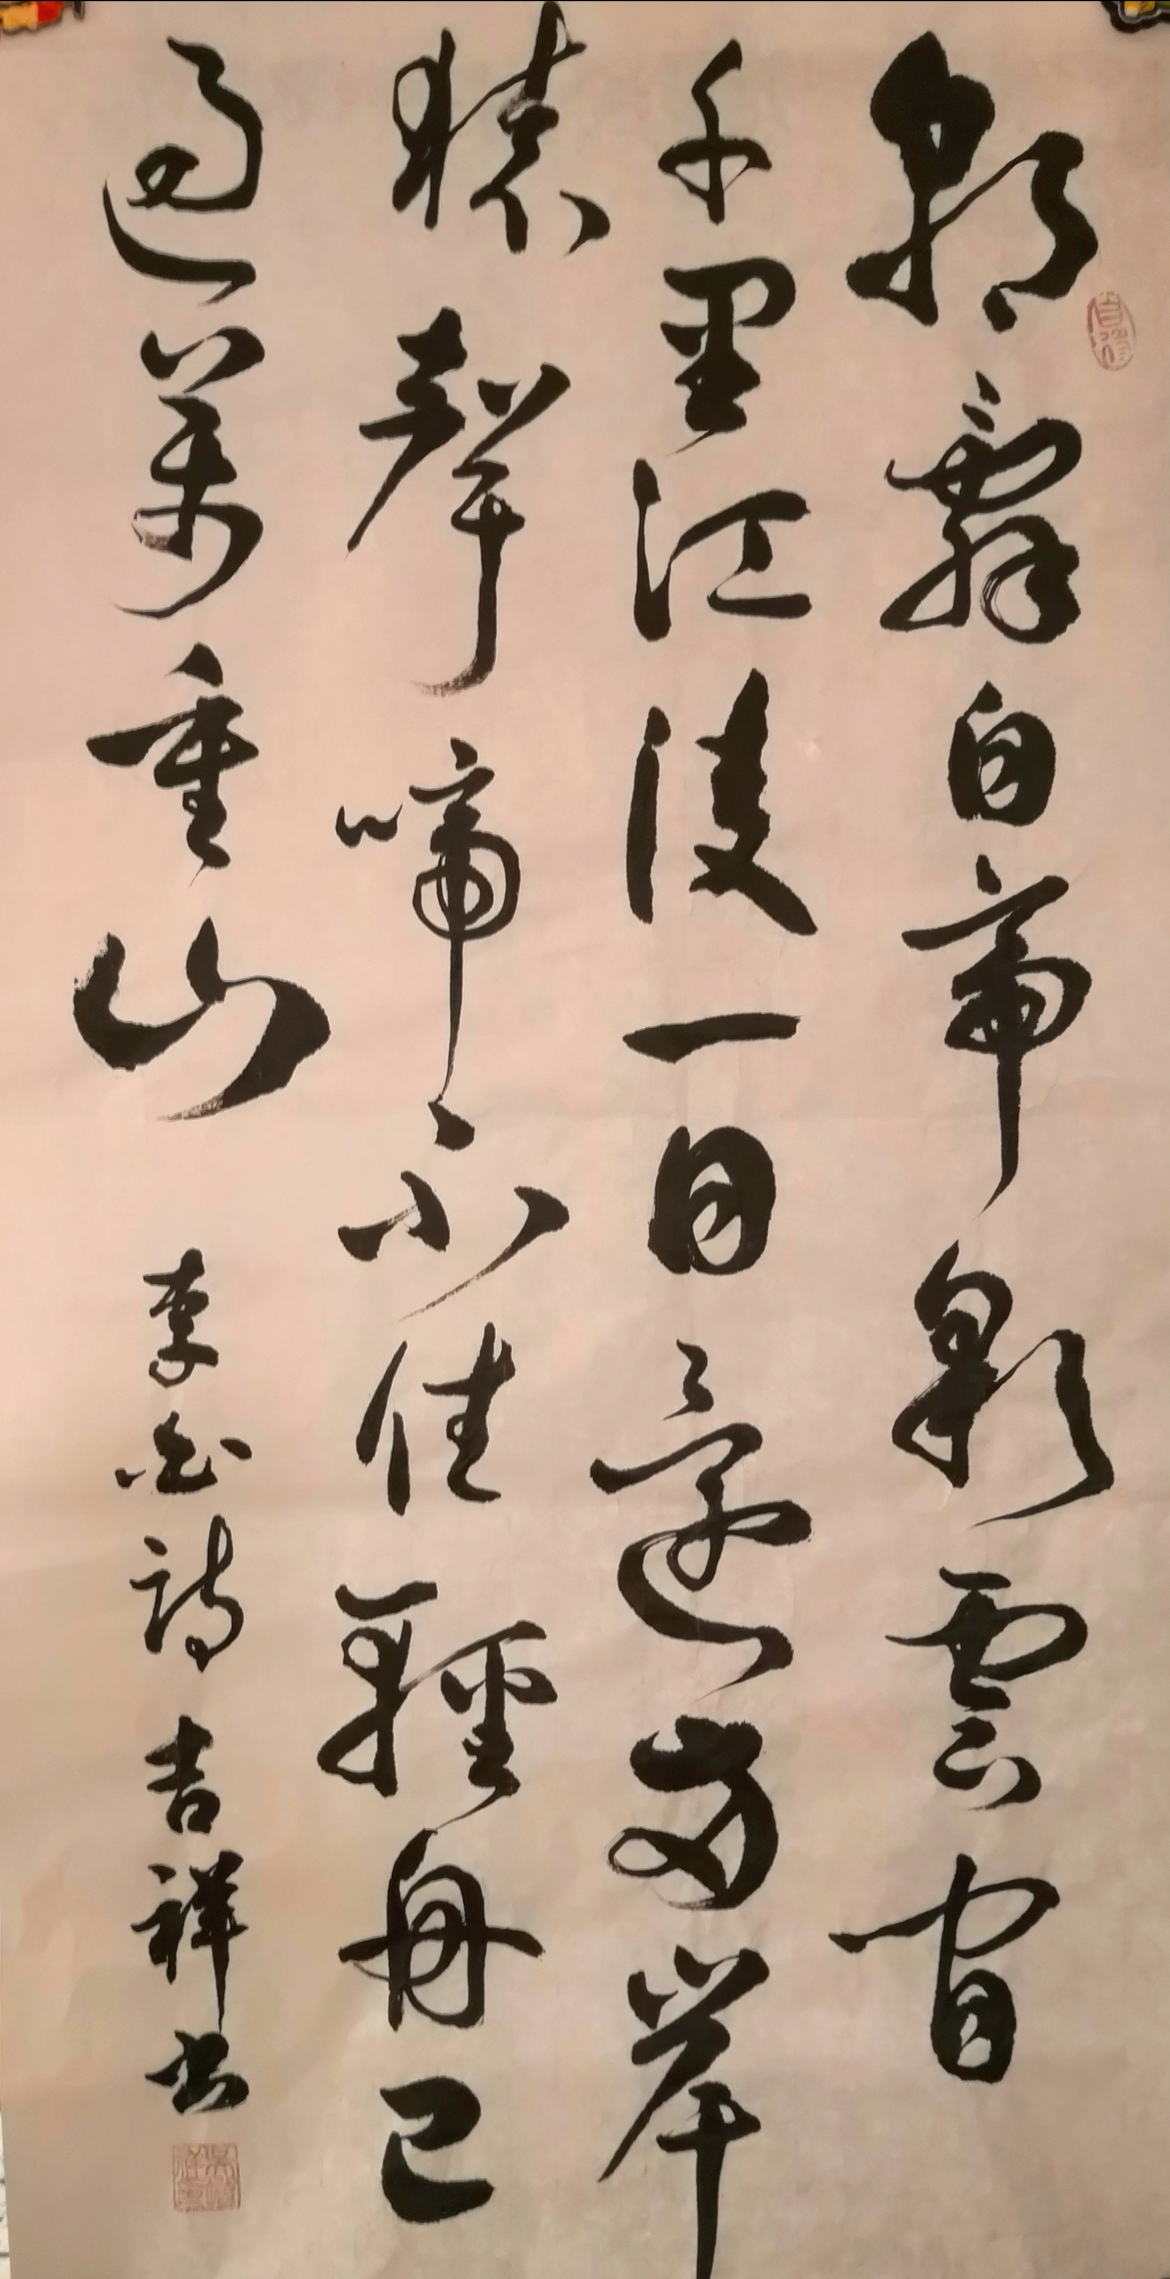 朝辭白帝彩雲間
千里江陵一日還兩岸
猿聲啼不住輕舟已
過萬重山 李白詩 吉祥书